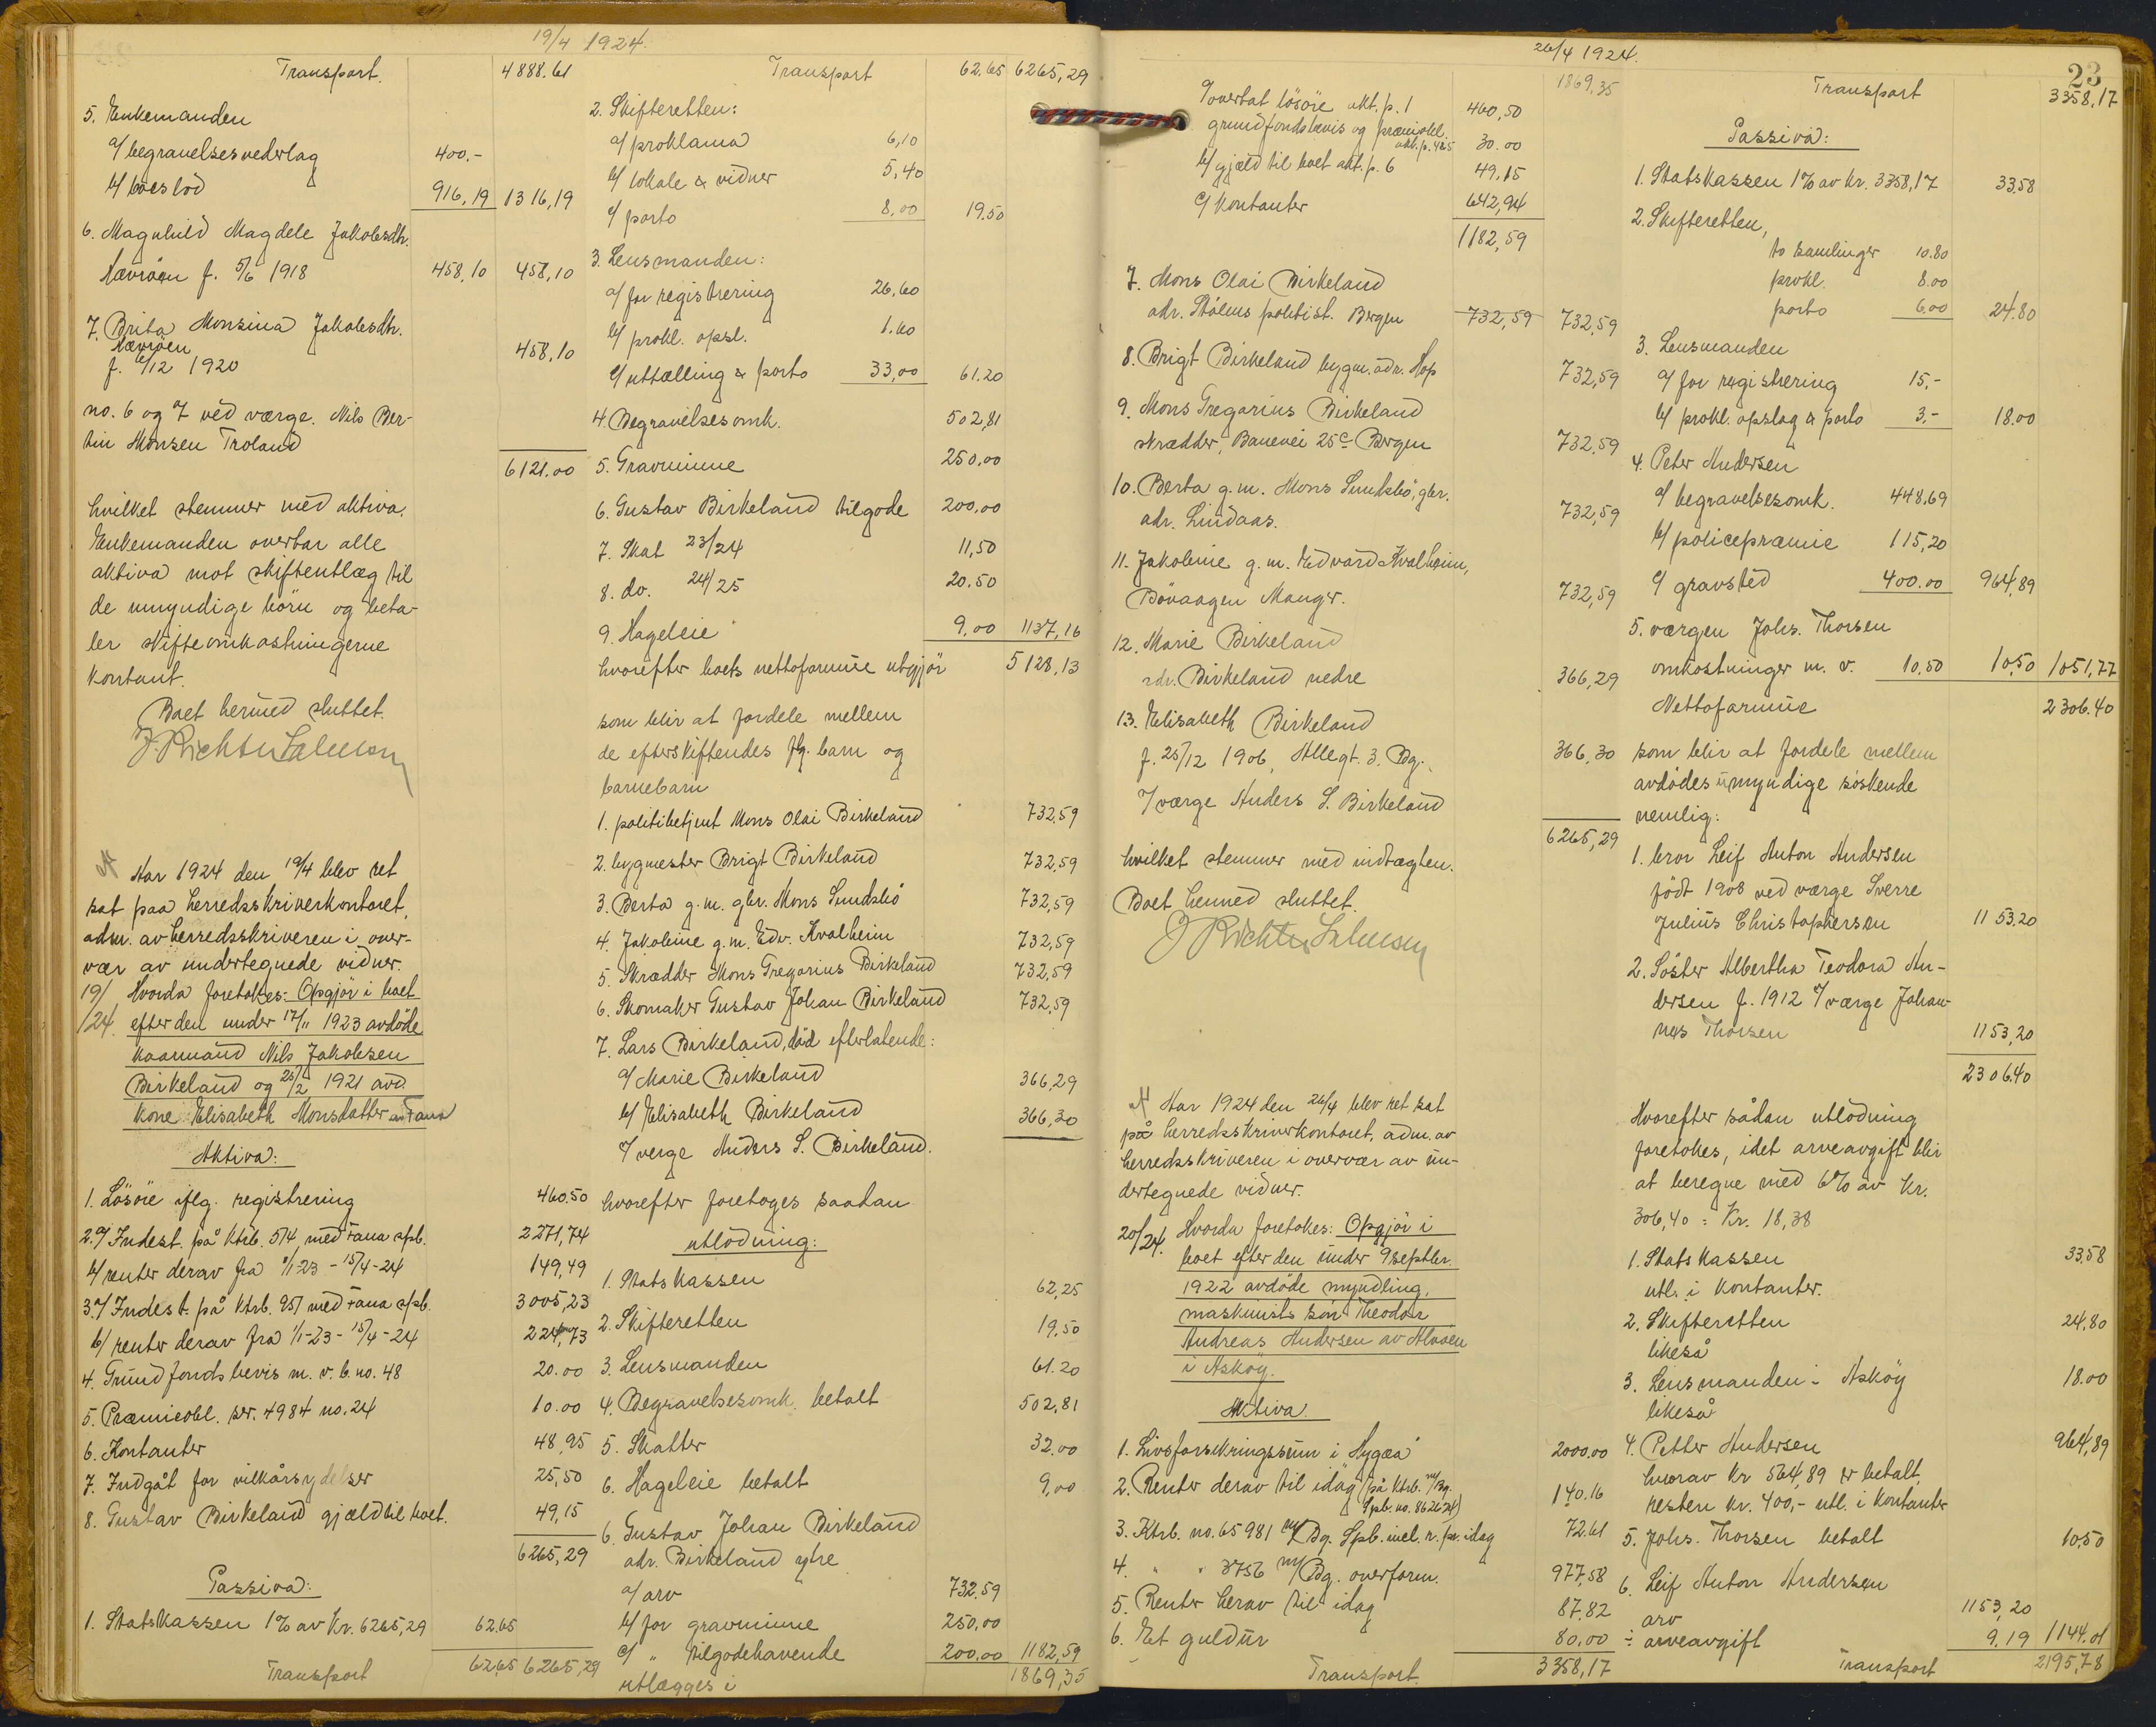 19/4 1924.
Transport. 4888.61
5. Enkemanden
a/ begravelsesvederlag 400.-
b/ boeslod 916,19 1316,19
6. Magnhild Magdele Jakobsdtr.
Nævröen f. 5/6 1918 458,10 458,10
7. Brita Monsina Jakobsdtr.
Nævröen
f. 6/12 1920 458,10
no. 6 og 7 ved værge. Nils Ber-
tin Monsen Troland
6121.00
hvilket stemmer med aktiva.
Enkemanden overtar alle
aktiva mot skifteutlæg til
de umyndige börn og beta-
ler skifteomkostningerne
kontant.
Boet hermed sluttet.
J. Richter Salvesen
Aar 1924 den 19/4 blev ret
sat paa herredsskriverkontoret,
adm. av herredsskriveren i over-
vær av undertegnede vidner.
19/ Hvorda foretokes: Opgjör i boet
/24. efter den under 17/11 1923 avdöde
kaarmand Nils Jakobsen
Birkeland og 25/2 1921 avd.
kone Elisabeth Monsdatter av Fana
Aktiva:
1. Lösöre iflg. registrering 460.50
2. a/ Indest. på ktrb. 514 med Fana spb. 2271,74
b/ renter derav fra 1/1-23 - 15/4-24 149,49
3. a/ Indest. på ktrb. 951 med Fana spb. 3005,23
b/ renter derav fra 1/1-23 - 15/4-24 224,73
4. Grundfondsbevis m. v. b. no. 48 20.00
5. Præmieobl. ser. 4984 no. 24 10.00
6. Kontanter 48,95
7. Indgåt for vilkårsydelser 25,50
8. Gustav Birkeland gjæld til boet. 49,15
6265,29
Passiva:
1. Statskassen 1% av kr. 6265,29 62.65
Transport 62,65 6265,29
Transport 62.65 6265,29
2. Skifteretten:
a/ proklama 6,10
b/ lokale & vidner 5,40
c/ porto 8,00 19.50
3. Lensmanden:
a/ for registrering 26,60
b/ prokl. opsl. 1.60
c/ uttælling & porto 33,00 61.20
4. Begravelsesomk. 502,81
5. Gravminne 250,00
6. Gustav Birkeland tilgode 200,00
7. Skat 23/24 11,50
8. do. 24/25 20.50
9. Hageleie 9,00 1137,16
hvorefter boets nettoformue utgjör 5128,13
som blir at fordele mellem
de efterskiftendes flg. barn og
barnebarn
1. politibetjent Mons Olai Birkeland 732,59
2. bygmester Brigt Birkeland 732,59
3. Berta g.m. gbr. Mons Sundsbö 732,59
4. Jakobine g.m. Edv. Kvalheim 732,59
5. Skrædder Mons Gregorius Birkeland 732,59
6. Skomaker Gustav Johan Birkeland 732,59
7. Lars Birkeland, död efterlatende:
a/ Marie Birkeland 366,29
b/ Elisabeth Birkeland 366,30
v/ verge Anders S. Birkeland.
hvorefter foretoges saadan
utlodning:
1. Statskassen 62,25
2. Skifteretten 19,50
3. Lensmanden 61.20
4. Begravelsesomk. betalt 502,81
5. Skatter 32.00
6. Hageleie betalt 9,00
6. Gustav Johan Birkeland
adr. Birkeland ytre
a/ arv 732.59
b/ for gravminne 250,00
c/ " tilgodehavende 200.00 1182,59
utlægges i 1869,35
26/4 1924.
23
1869,35
a/ overtat lösöre akt. p. 1 460,50
grundfondsbevis og præmiobl.
akt. p. 4 & 5 30.00
b/ gjæld til boet akt. p. 6 49,15
c/ kontanter 642,94
1182,59
7. Mons Olai Birkeland
adr. Stölens politist. Bergen 732,59 732,59
8. Brigt Birkeland bygm. adr. Hop 732,59
9. Mons Gregorius Birkeland
skrædder, Banevei 25c Bergen 732,59
10. Berta g.m. Mons Sundsbö, gbr.
adr. Lindaas. 732,59
11. Jakobine g.m. Edvard Kvalheim,
Bövaagen Manger. 732,59
12. Marie Birkeland
adr. Birkeland nedre 366,29
13. Elisabeth Birkeland
f. 25/12 1906, Allegt. 3. Bg. 366,30
v/ værge Anders S. Birkeland
6265,29
hvilket stemmer med indtægten.
Boet hermed sluttet.
J. Richter Salvesen
Aar 1924 den 26/4 blev ret sat
på herredsskriverkontoret, adm. av
herredsskriveren i overvær av un-
dertegnede vidner.
20/24. Hvorda foretokes: Opgjör i
boet efter den under 9 septbr.
1922 avdöde myndling,
maskinists sön Theodor
Andreas Andersen av Alvöen
i Asköy.
Aktiva.
1. Livsforsikringssum i Hygæa 2000.00
2. Renter derav til idag (på ktrb. m/ Bg.
Spb. no. 862634) 140.16
3. Ktrb. no. 65981 m/ Bg. Spb. incl. r. pr. idag 72.61
4. " " 3756 m/ Bg. overform. 977,58
5. Renter herav til idag 87,82
6. Et guldur 80,00
Transport. 3358,17
Transport 3358,17
Passiva:
1. Statskassen 1% av kr. 3358,17 33.58
2. Skifteretten,
to samlinger 10.80
prokl. 8.00
porto 6.00 24.80
3. Lensmanden
a/ for registrering 15,-
b/ prokl. opslag & porto 3,- 18.00
4. Peter Andersen
a/ begravelsesomk. 448,69
b/ policepræmie 115,20
c/ gravsted 400.00 964,89
5. værgen Johs. Thorsen
omkostninger m. v. 10,50 10,50 1051,77
Nettoformue 2306.40
som blir at fordele mellem
avdödes umyndige söskende
nemlig:
1. bror Leif Anton Andersen
födt 1908 ved værge Sverre
Julius Christophersen 1153,20
2. Söster Albertha Teodora An-
dersen f. 1912 v/ værge Johan-
nes Thorsen 1153,20
2306.40
Hvorefter sådan utlodning
foretokes, idet arveavgift blir
at beregne med 6% av kr.
306,40 = Kr. 18,38
1. Statskassen 33.58
utl. i kontanter.
2. Skifteretten 24,80
likeså
3. Lensmanden i Asköy 18.00
likeså
4. Petter Andersen 964,89
hvorav kr 564,89 er betalt,
resten kr. 400,- utl. i kontanter
5. Johs. Thorsen betalt 10.50
6. Leif Anton Andersen
arv 1153,20
÷ arveavgift 9.19 1144.01
Transport 2195,78